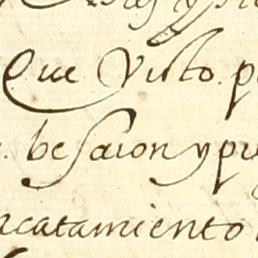 Que Visto. p
besaron ypu
acatamiento